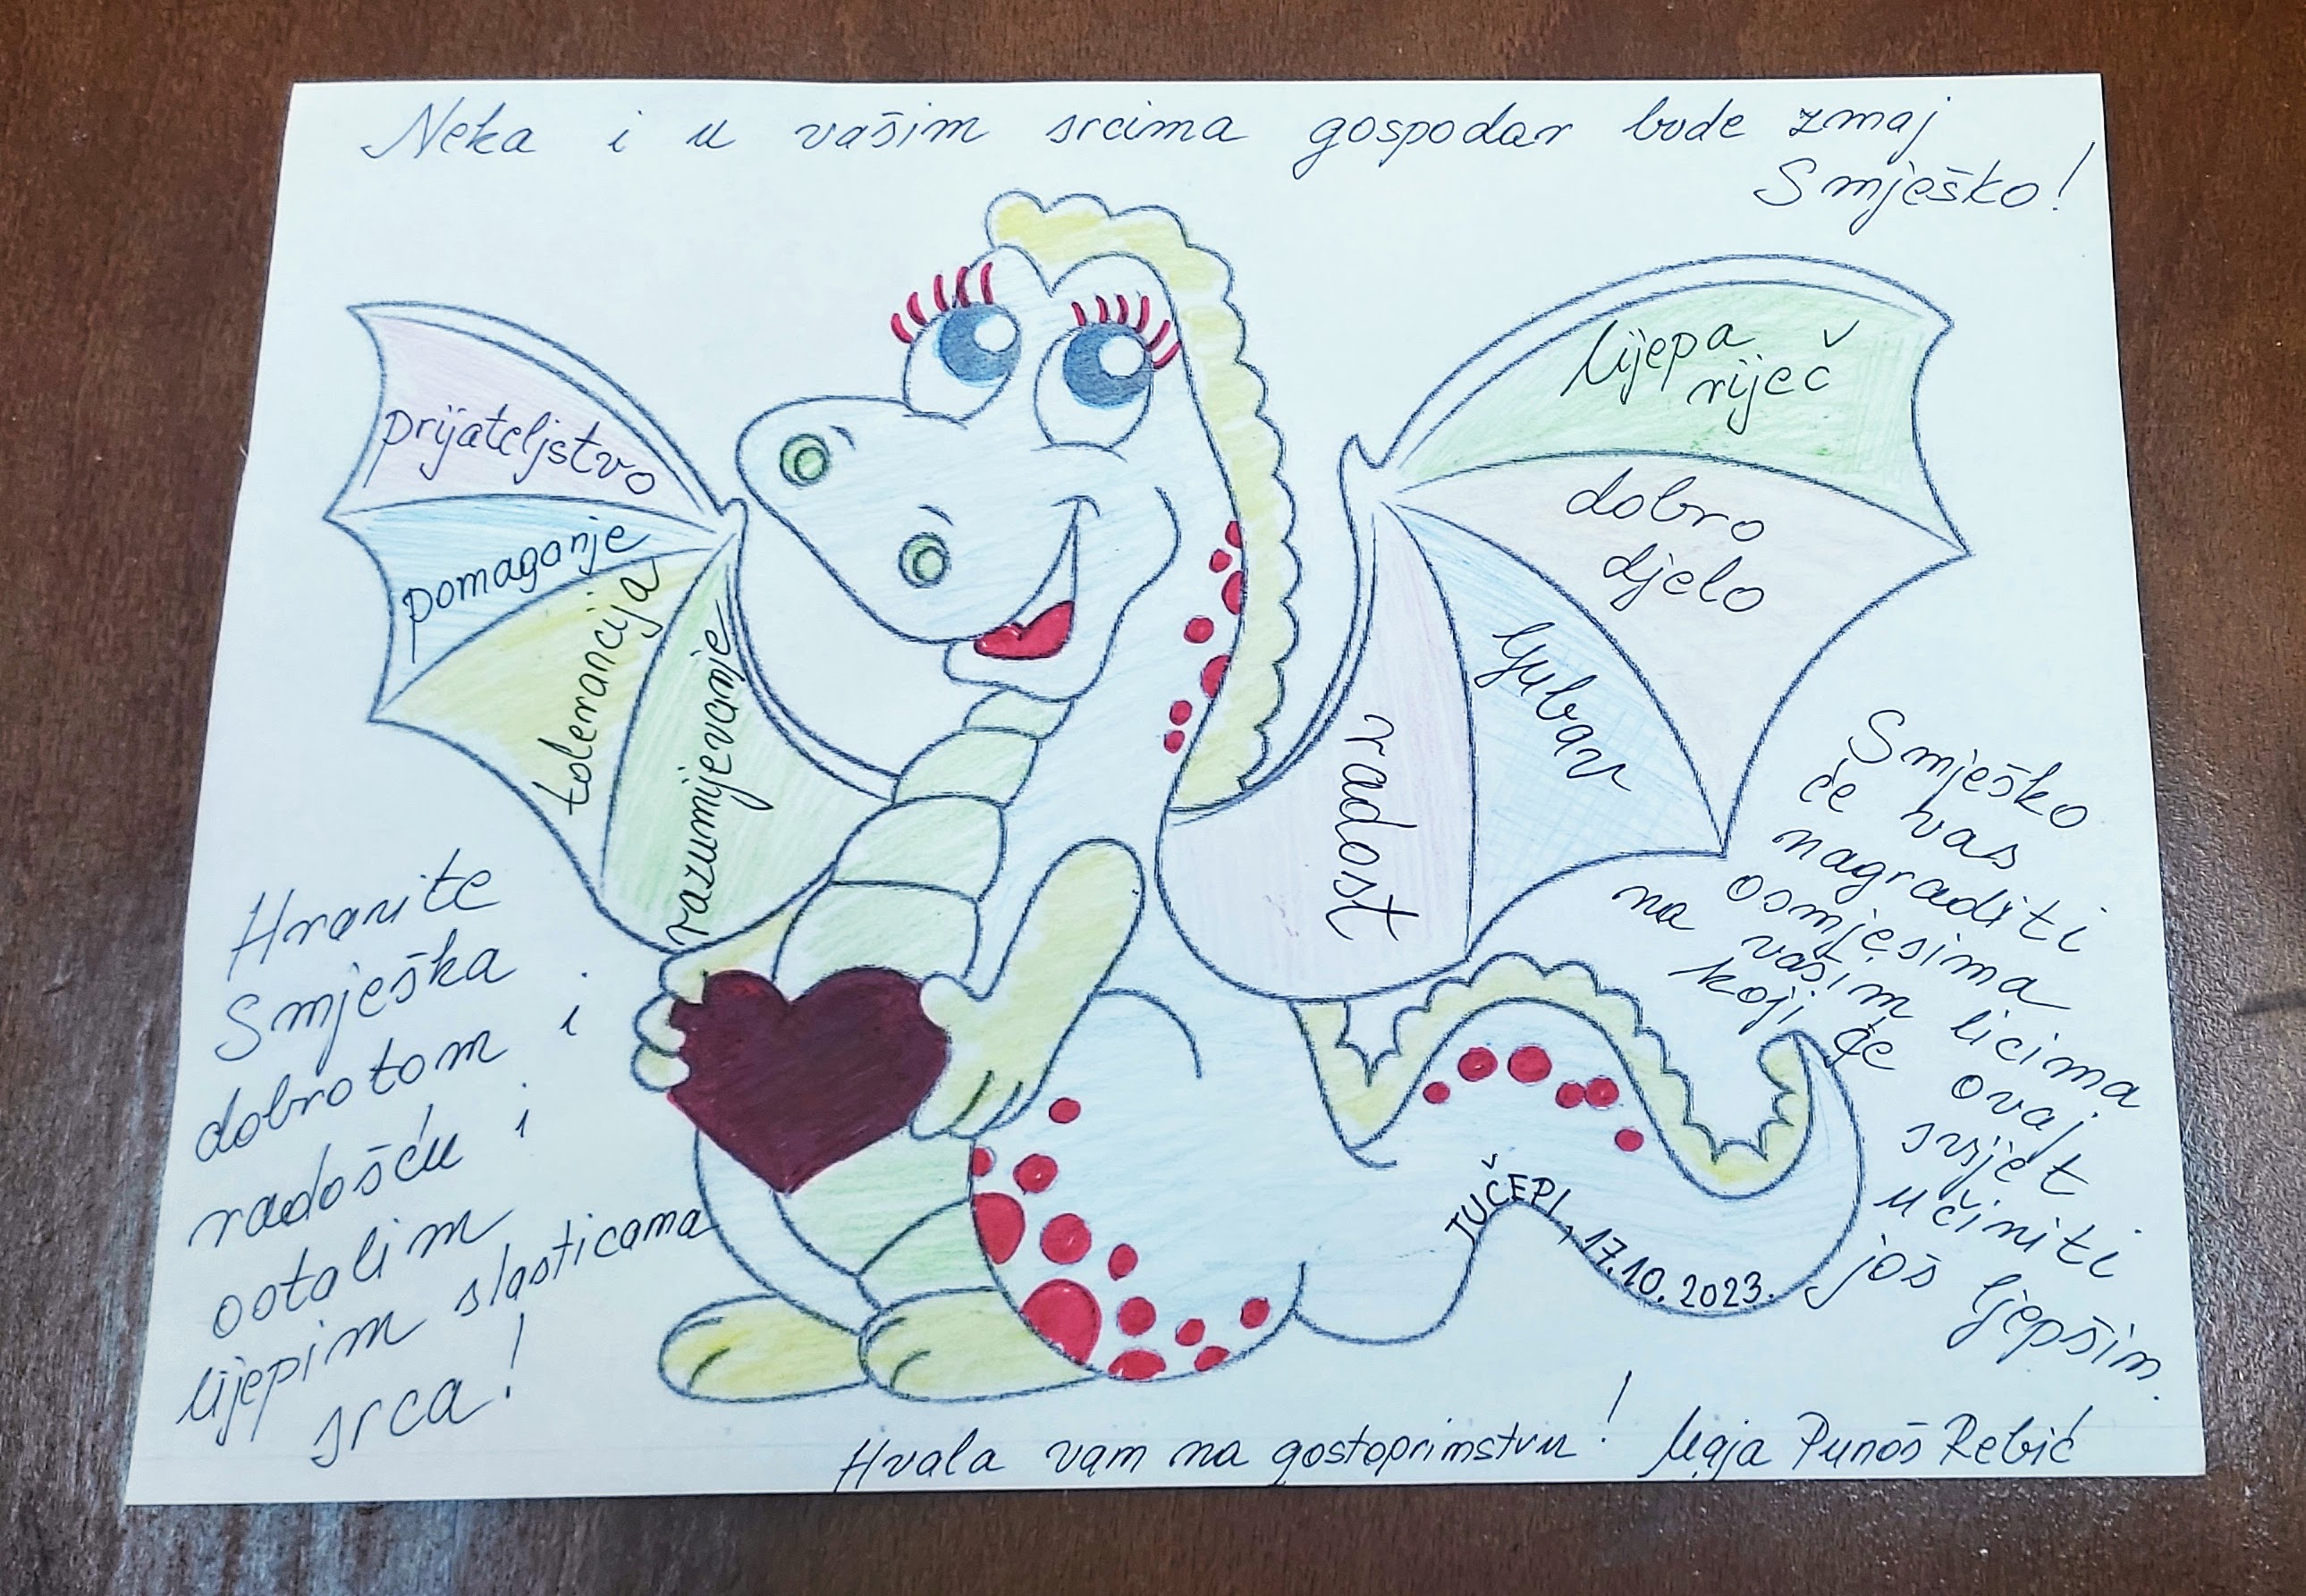 Neka i u vašim srcima gospodar bude zmaj
Smješko!
prijateljstvo
pomaganje
tolerancija
razumijevanje
lijepa
riječ
dobro
djelo
ljubav
radost
Hranite
Smješka
dobrotom i
radošću i
ostalim
lijepim slasticama
srca!
Smješko
će vas
nagraditi
osmjesima
na vašim licima
koji će ovaj
svijet
učiniti
još ljepšim.
TUČEPI, 17.10.2023.
Hvala vam na gostoprimstvu! Maja Punoš Rebić